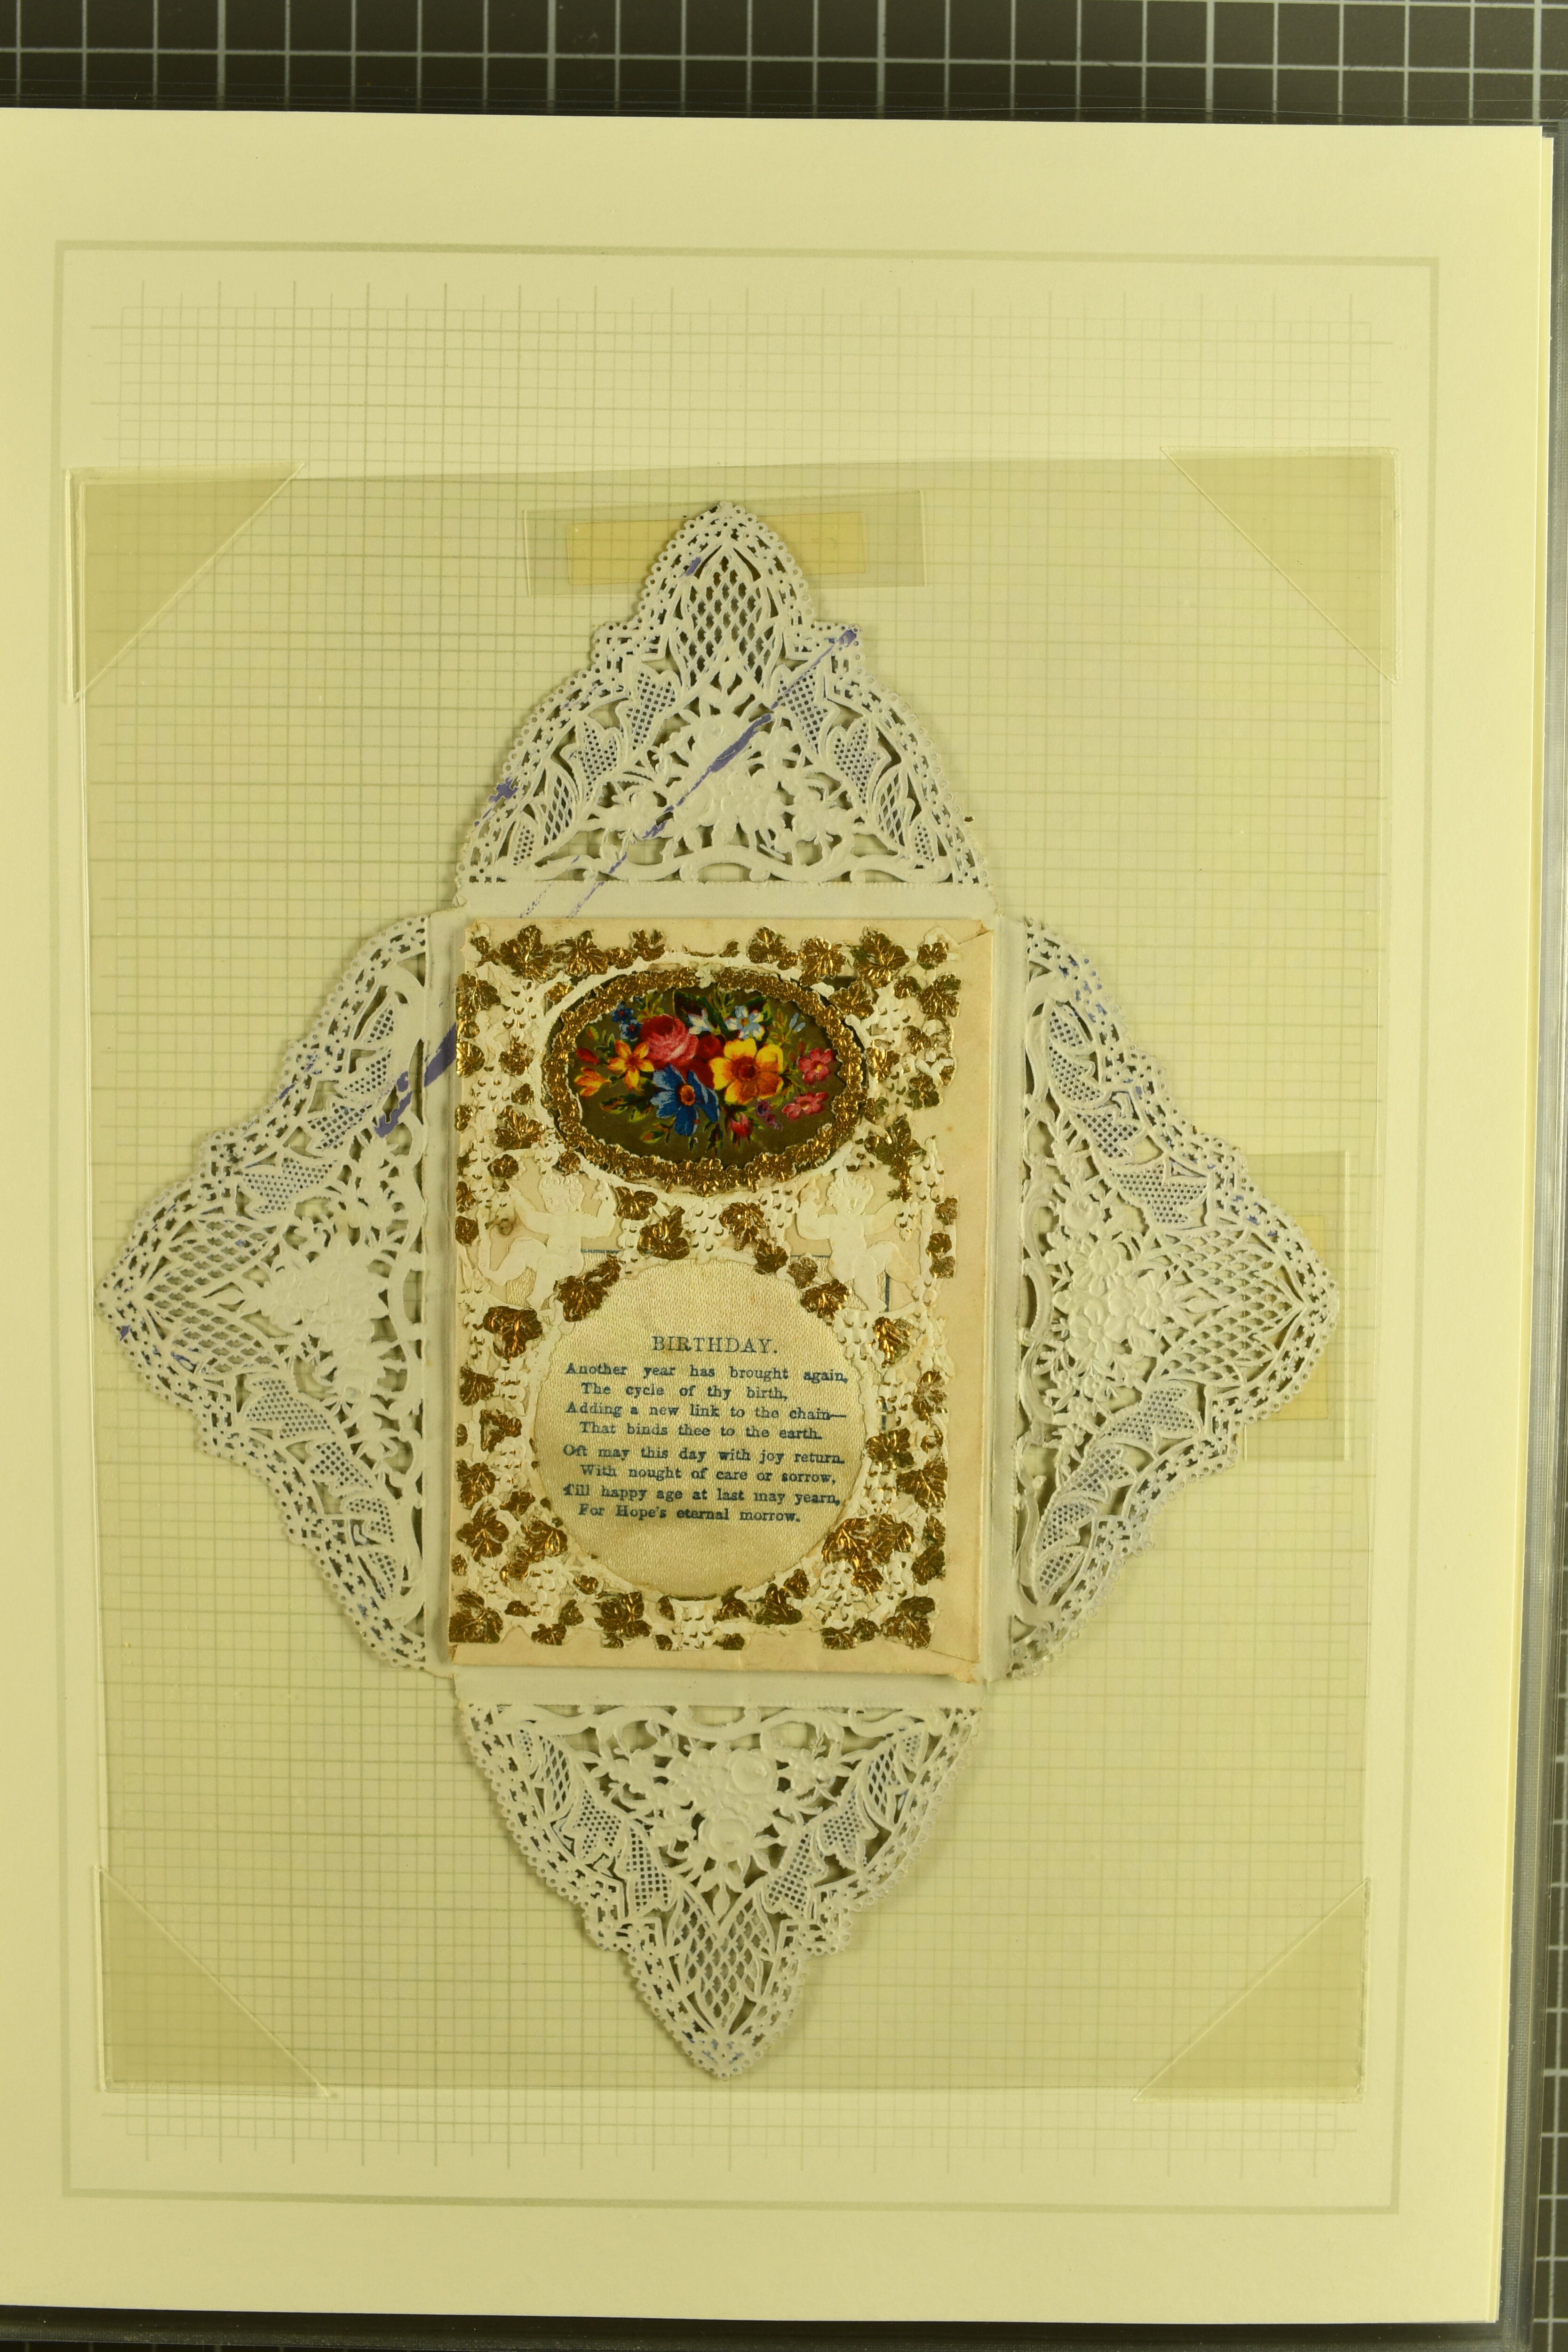 BIRTHDAY.
Another year has brought again,
The cycle of thy birth,
Adding a new link to the chain—
That binds thee to the earth.
Oft may this day with joy return.
With nought of care or sorrow,
Till happy age at last may yearn,
For Hope's eternal morrow.